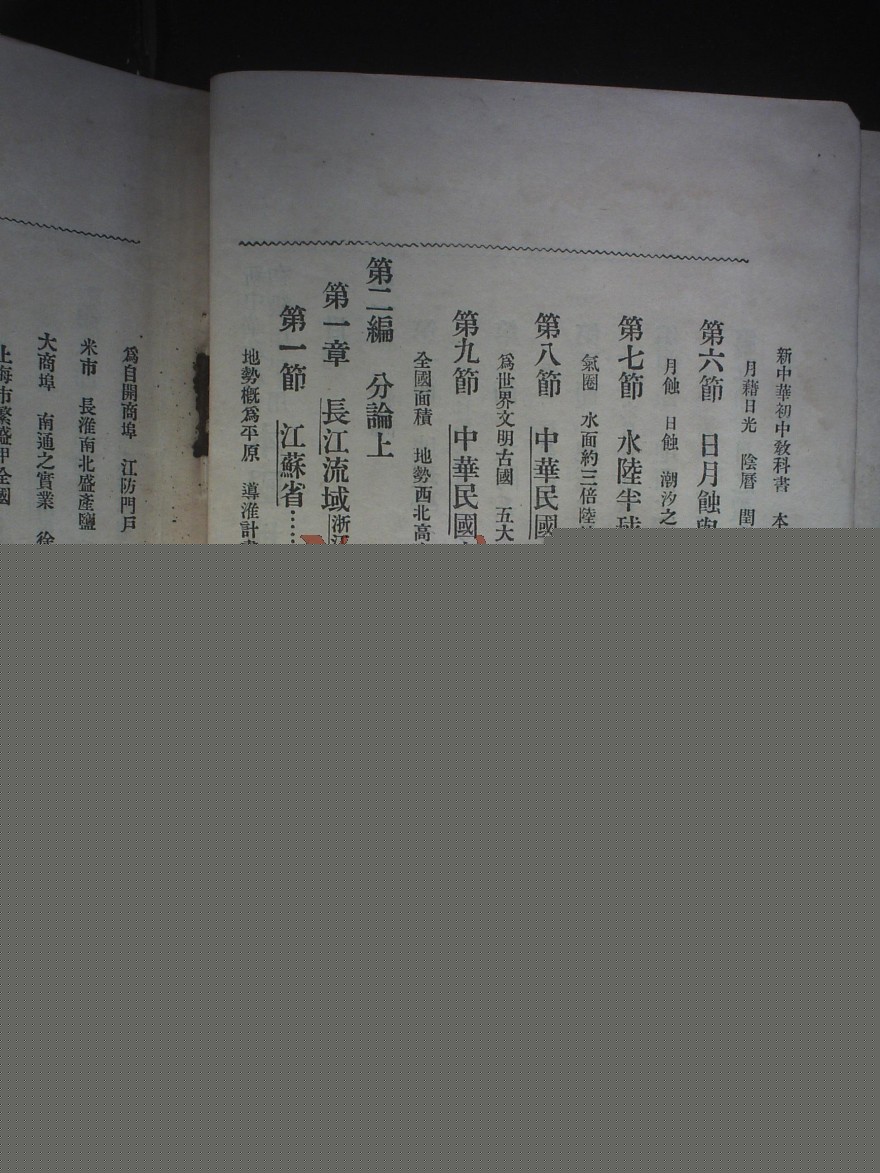 新中華初中教科書 本
月藉日光 陰曆 閏
第六節 日月蝕與
月蝕 日蝕 潮汐之
第七節 水陸半球
氣圈 水面約三倍陸
第八節 中華民國
爲世界文明古國 五大
第九節 中華民國
全國面積 地勢西北高
第二編 分論上
第一章 長江流域 浙江
第一節 江蘇省……
地勢概爲平原 導淮計畫
爲自開商埠 江防門戶
米市 長淮南北盛產鹽
大商埠 南通之實業 徐
上海市繁盛甲全國